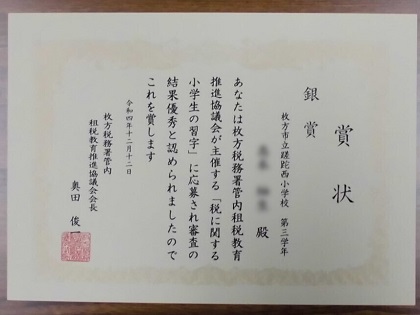 賞状
銀賞
枚方市立蹉跎西小学校 第三学年
殿
あなたは枚方税務署管内租税教育
推進協議会が主催する「税に関する
小学生の習字」に応募され審査の
結果優秀と認められましたので
これを賞します
令和四年十二月十二日
枚方税務署管内
租税教育推進協議会会長
奥田 俊一